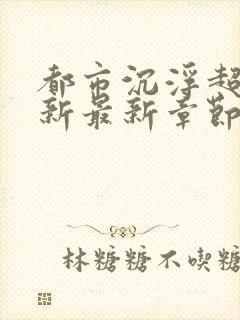 都市沉浮超
新最新章節
林糖糖不喫糖